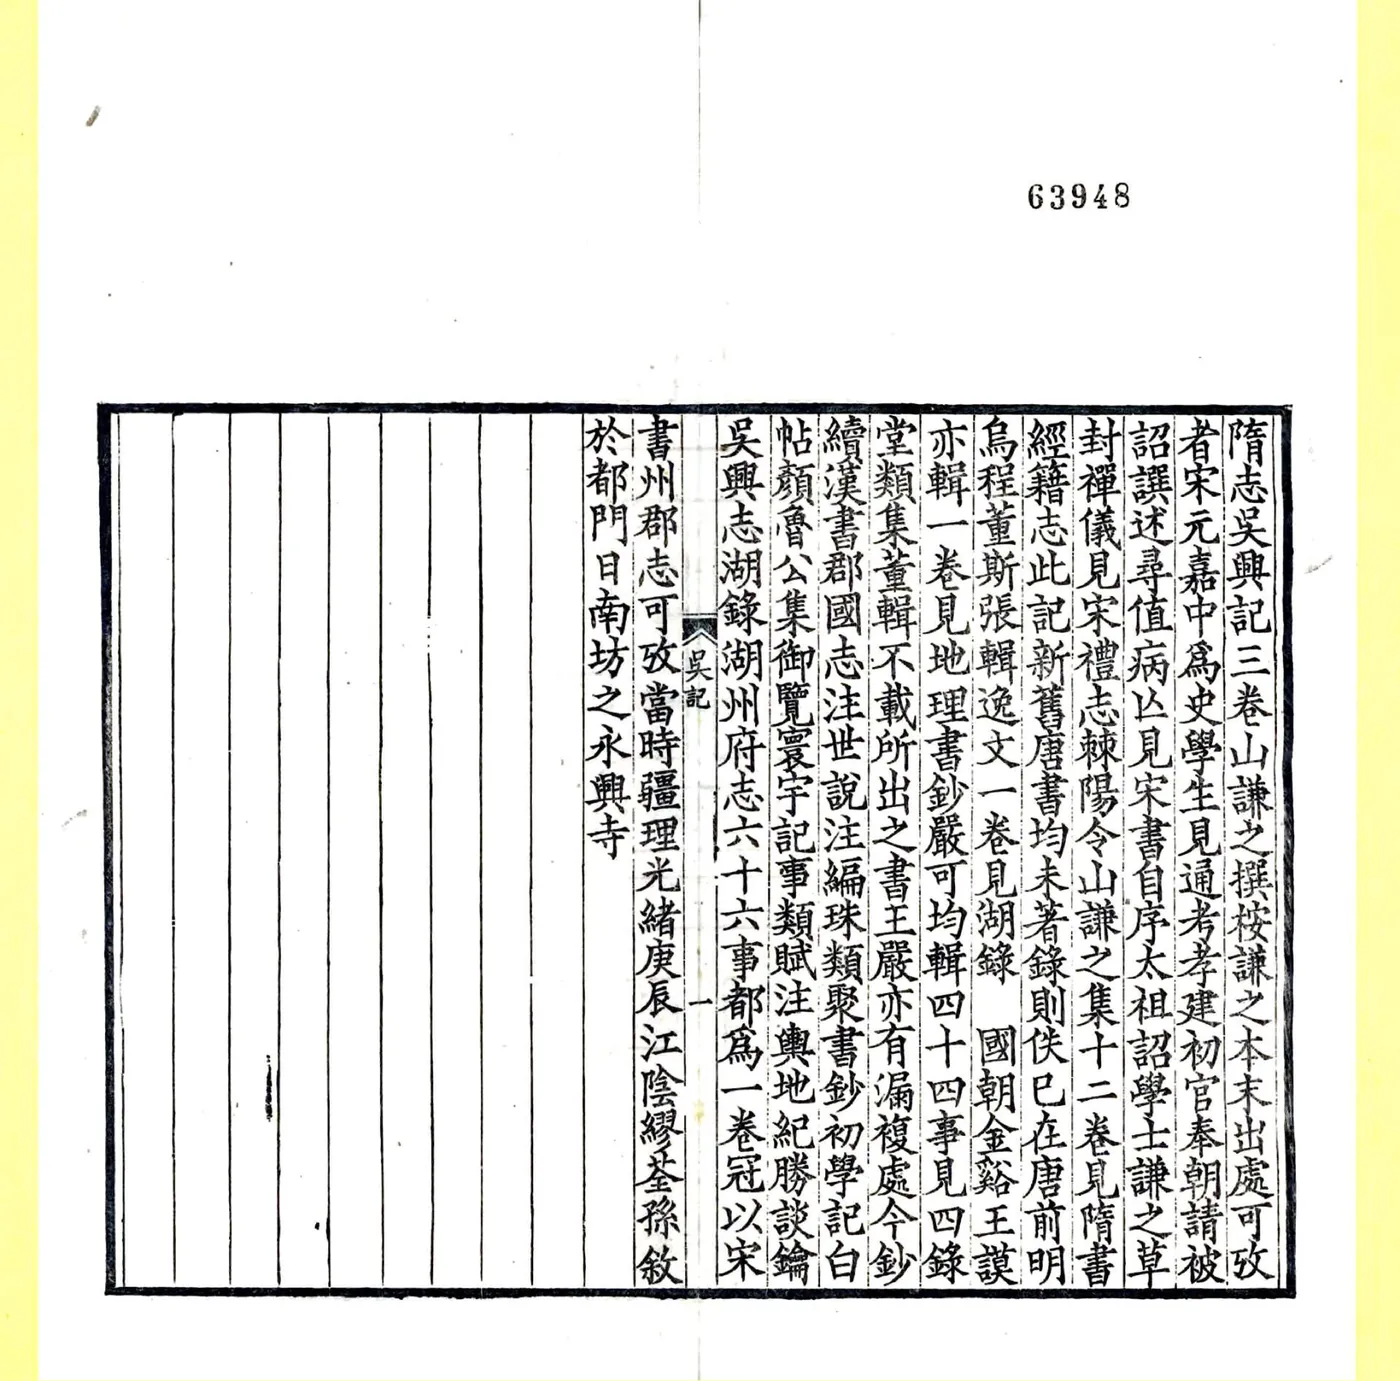 63948
隋志吳興記三卷山謙之撰桉謙之本末出處可攷
者宋元嘉中爲史學生見通考孝建初官奉朝請被
詔譔述尋值病亾見宋書自序太祖詔學士謙之草
封禪儀見宋禮志棘陽令山謙之集十二卷見隋書
經籍志此記新舊唐書均未著錄則佚已在唐前明
烏程董斯張輯逸文一卷見湖錄　國朝金谿王謨
亦輯一卷見地理書鈔嚴可均輯四十四事見四錄
堂類集董輯不載所出之書王嚴亦有漏複處今鈔
續漢書郡國志注世說注編珠類聚書鈔初學記白
帖顏魯公集御覽寰宇記事類賦注輿地紀勝談鑰
吳興志湖錄湖州府志六十六事都爲一卷冠以宋
吳記
一
書州郡志可攷當時疆理光緒庚辰江陰繆荃孫敘
於都門日南坊之永興寺